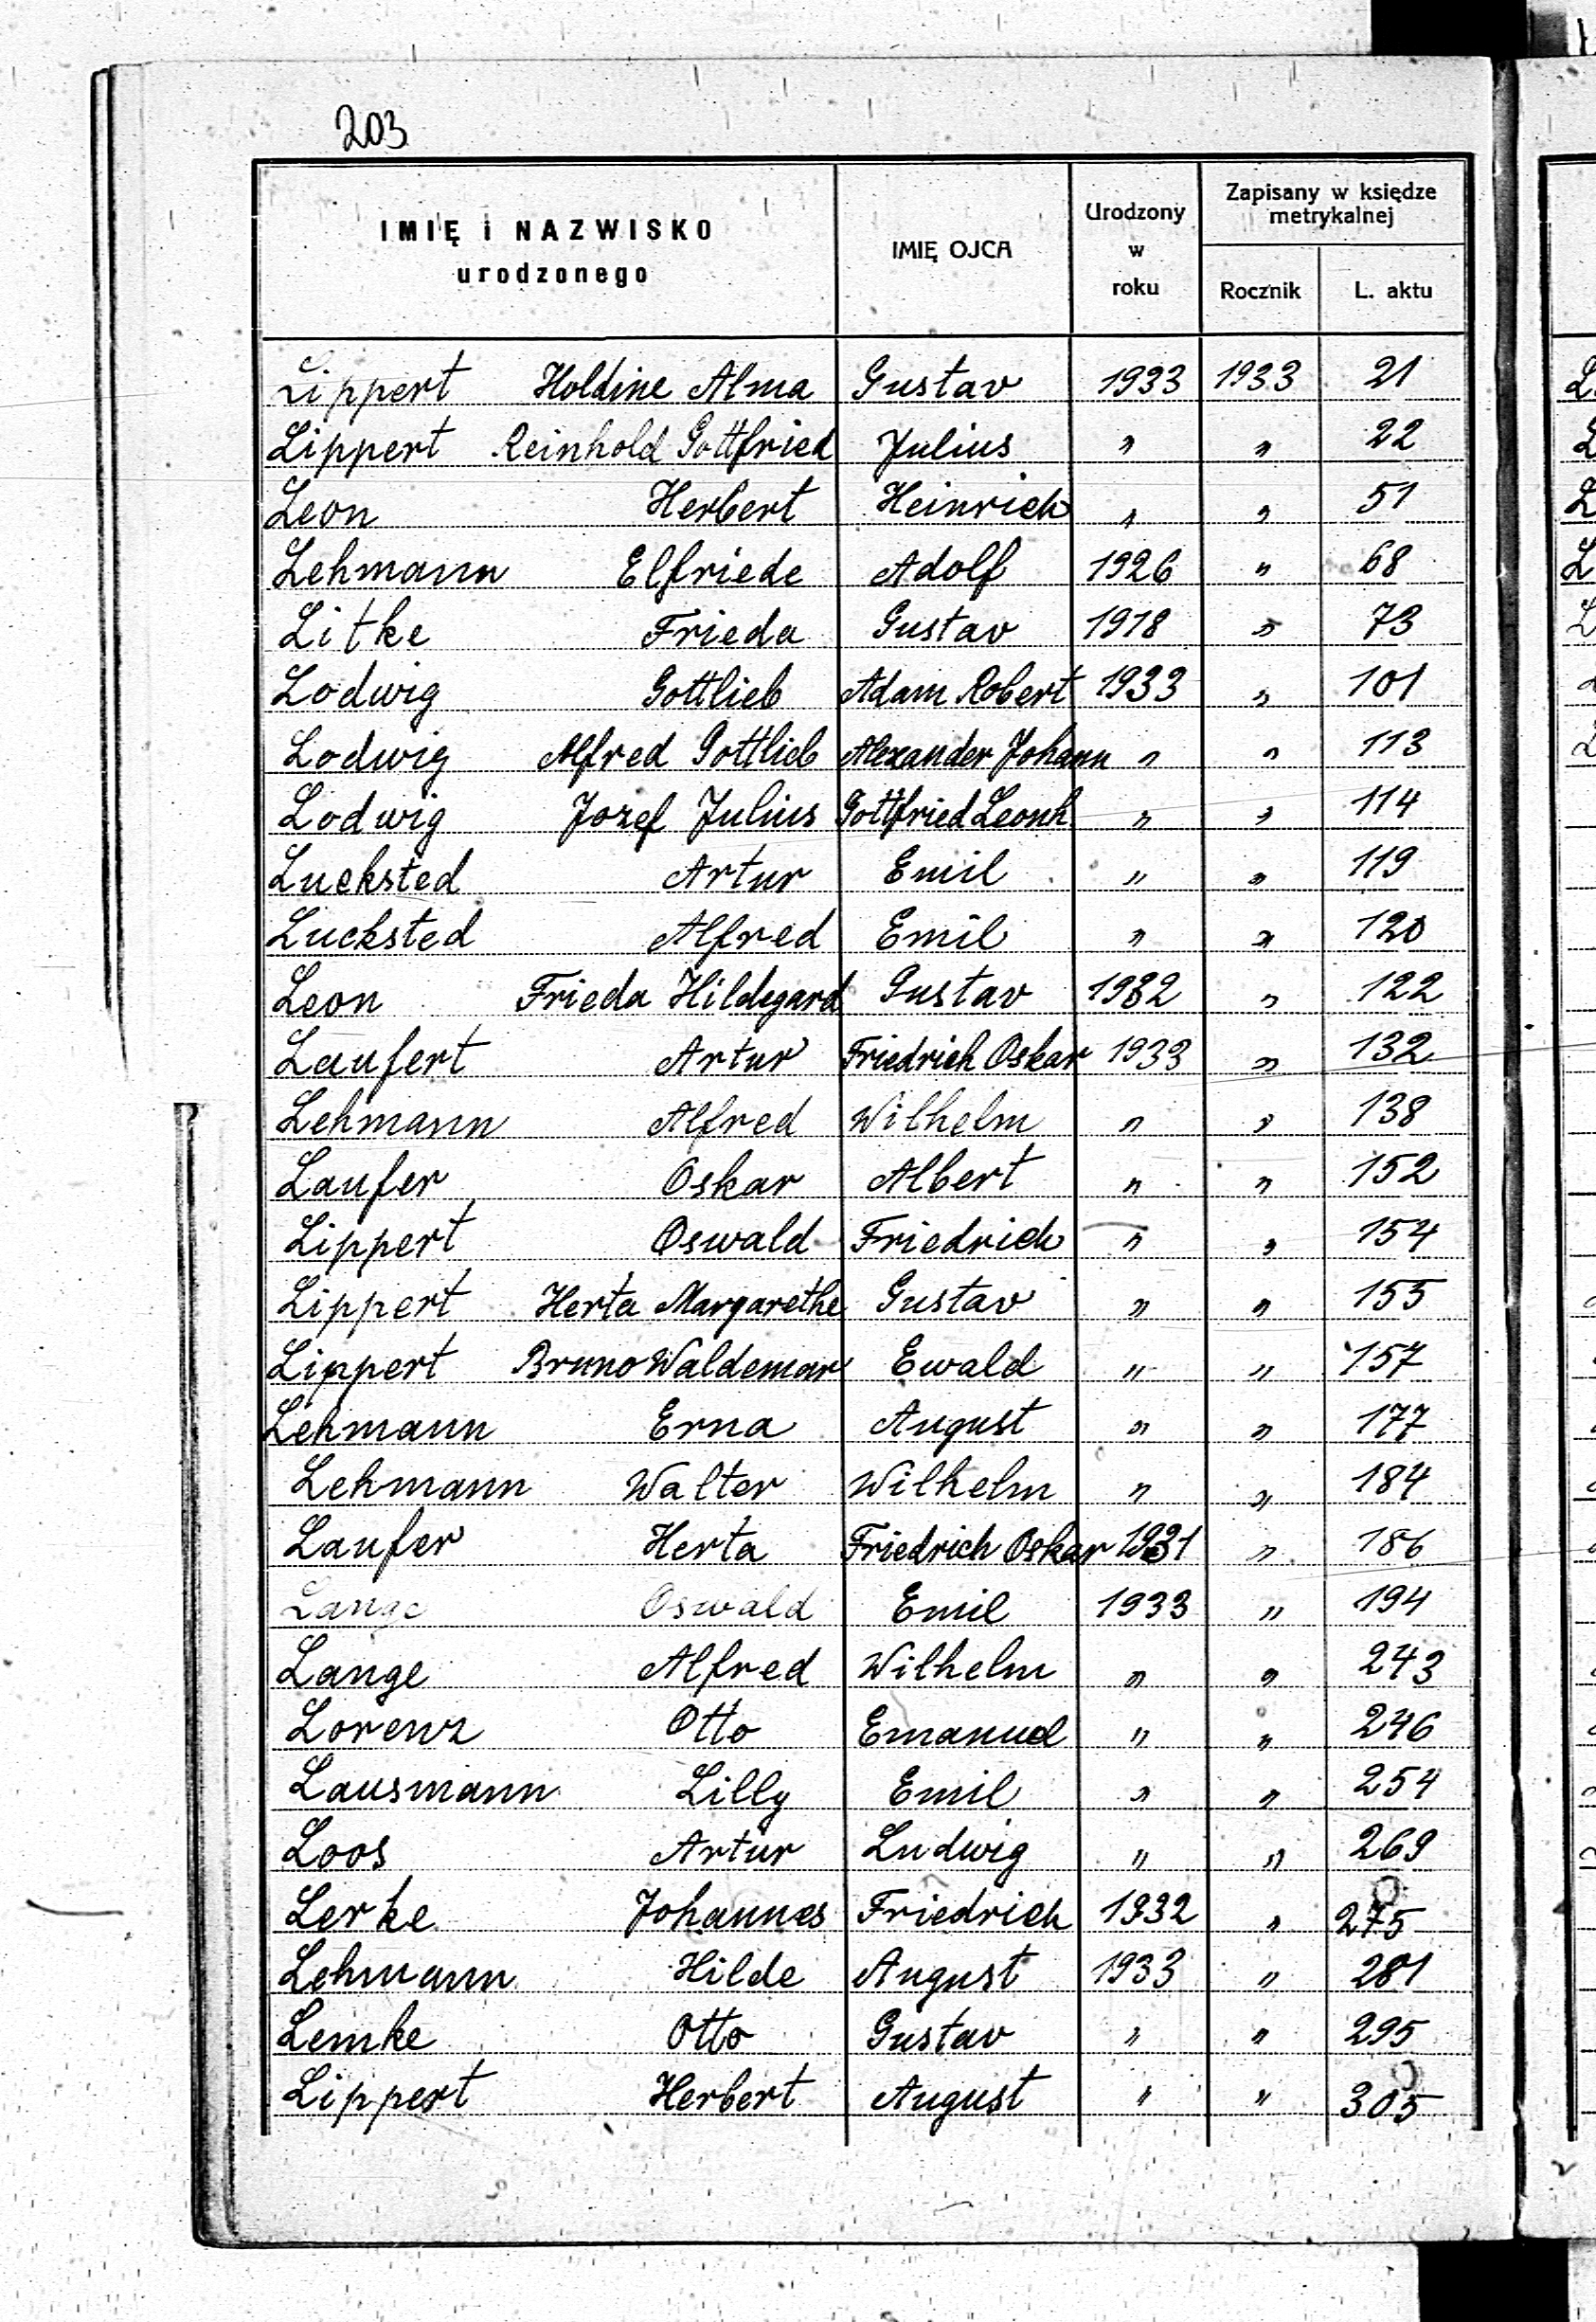 203
IMIĘ i NAZWISKO urodzonego | IMIĘ OJCA | Urodzony w roku | Zapisany w księdze metrykalnej
Rocznik | L. aktu
Lippert Holdine Alma | Gustav | 1933 | 1933 | 21
Lippert Reinhold Gottfried | Julius | " | " | 22
Leon Herbert | Heinrich | " | " | 51
Lehmann Elfriede | Adolf | 1926 | " | 68
Litke Frieda | Gustav | 1918 | " | 73
Lodwig Gottlieb | Adam Robert | 1933 | " | 101
Lodwig Alfred Gottlieb | Alexander Johann | " | " | 113
Lodwig Jozef Julius | Gottfried Leonh | " | " | 114
Lucksted Artur | Emil | " | " | 119
Lucksted Alfred | Emil | " | " | 120
Leon Frieda Hildegard | Gustav | 1932 | " | 122
Laufert Artur | Friedrich Oskar | 1933 | " | 132
Lehmann Alfred | Wilhelm | " | " | 138
Laufer Oskar | Albert | " | " | 152
Lippert Oswald | Friedrich | " | " | 154
Lippert Herta Margarethe | Gustav | " | " | 155
Lippert Bruno Waldemar | Ewald | " | " | 157
Lehmann Erna | August | " | " | 177
Lehmann Walter | Wilhelm | " | " | 184
Laufer Herta | Friedrich Oskar | 1931 | " | 186
Lange Oswald | Emil | 1933 | " | 194
Lange Alfred | Wilhelm | " | " | 243
Lorenz Otto | Emanuel | " | " | 246
Lausmann Lilly | Emil | " | " | 254
Loos Artur | Ludwig | " | " | 269
Lerke Johannes | Friedrich | 1932 | " | 275
Lehmann Hilde | August | 1933 | " | 281
Lemke Otto | Gustav | " | " | 295
Lippert Herbert | August | " | " | 305